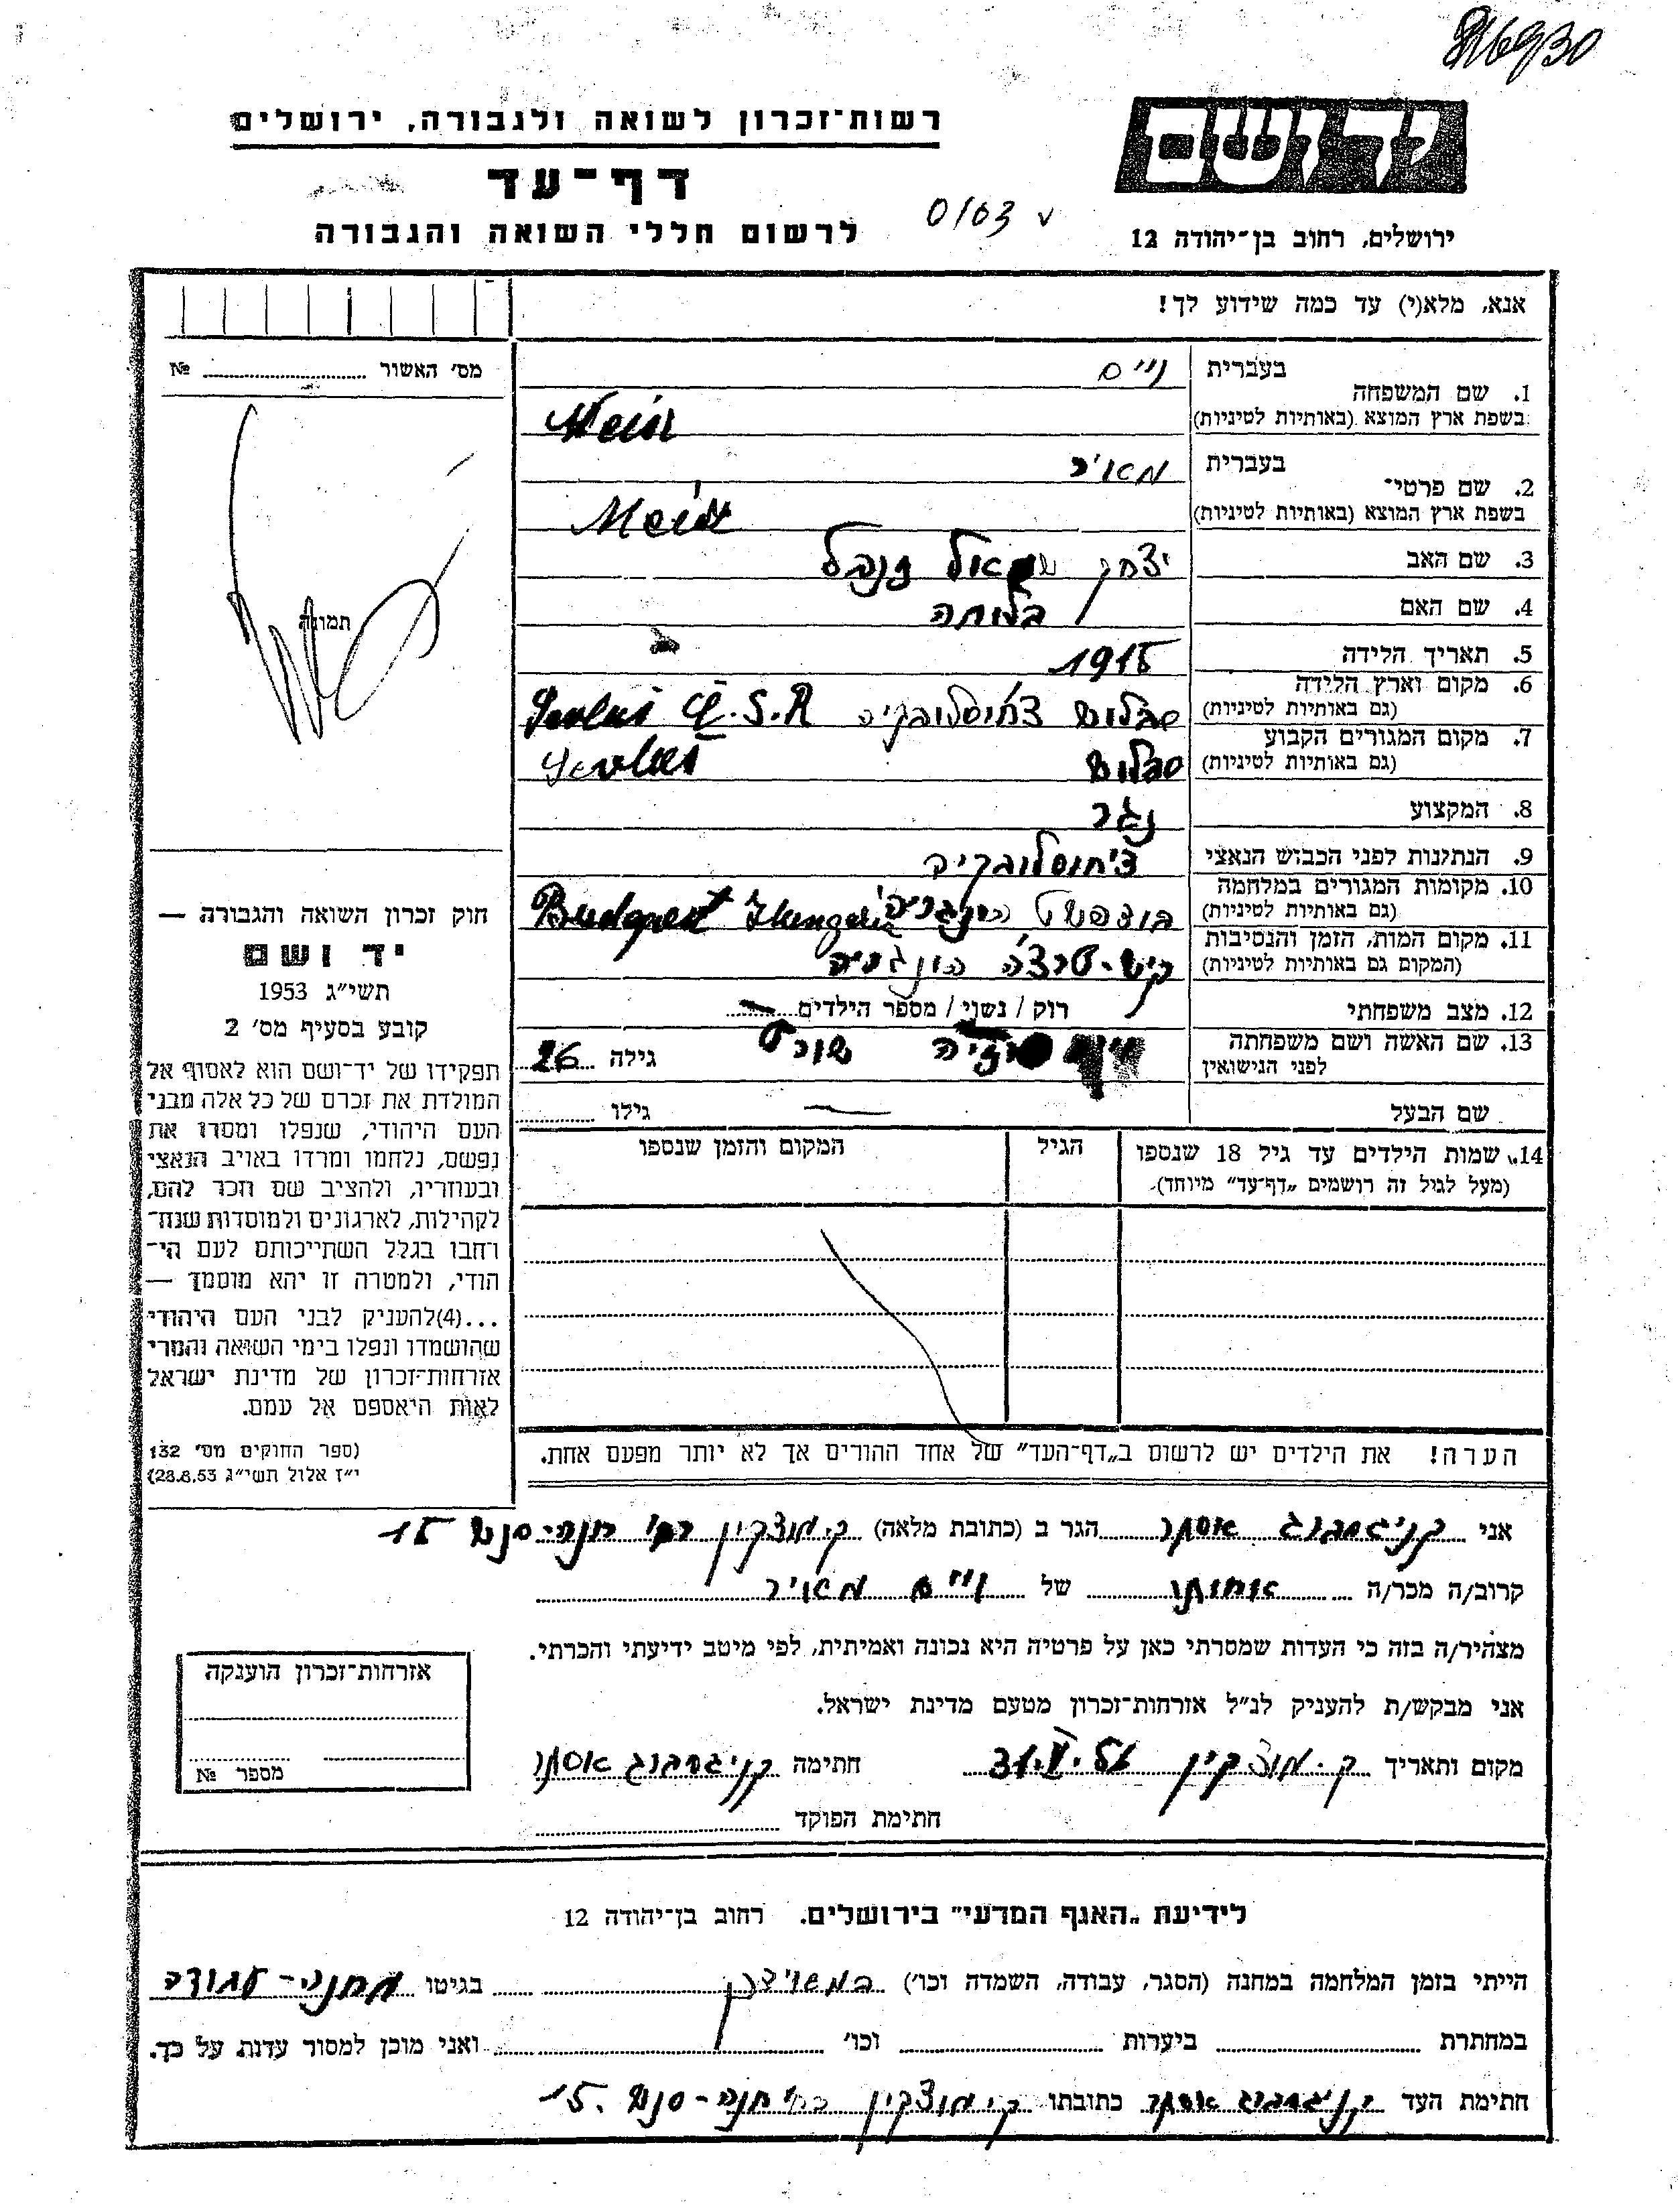 816930
רשות־זכרון לשואה ולגבורה, ירושלים
יד ושם
דף־עד
0/03 v
לרשום חללי השואה והגבורה
ירושלים, רחוב בן־יהודה 12
אנא, מלא(י) עד כמה שידוע לך!
מס׳ האשור № 
תמונה
1. שם המשפחה
בעברית
בשפת ארץ המוצא (באותיות לטיניות)
2. שם פרטי־
בעברית מאיר
בשפת ארץ המוצא (באותיות לטיניות) Meir
3. שם האב יצחק
4. שם האם בלומה
5. תאריך הלידה 1915
6. מקום וארץ הלידה
(גם באותיות לטיניות) סבלוש צ׳וסלובקיה Sevluš Č.S.R
7. מקום המגורים הקבוע
(גם באותיות לטיניות) סבלוש Sevluš
8. המקצוע נגר
9. הנתינות לפני הכבוש הנאצי צ׳חוסלובקיה
10. מקומות המגורים במלחמה
(גם באותיות לטיניות) בודפשט הונגריה Budapest
11. מקום המות, הזמן והנסיבות
(המקום גם באותיות לטיניות) קיש-טרצ׳ה הונגריה
12. מצב משפחתי רוק / נשוי / מספר הילדים
13. שם האשה ושם משפחתה
לפני הנישואין גילה 26
שם הבעל — גילו
14. שמות הילדים עד גיל 18 שנספו
(מעל לגיל זה רושמים „דף־עד״ מיוחד).
הגיל
המקום והזמן שנספו
הערה! את הילדים יש לרשום ב„דף־העד״ של אחד ההורים אך לא יותר מפעם אחת.
חוק זכרון השואה והגבורה —
יד ושם
תשי״ג 1953
קובע בסעיף מס׳ 2
תפקידו של יד־ושם הוא לאסוף אל
המולדת את זכרם של כל אלה מבני
העם היהודי, שנפלו ומסרו את
נפשם, נלחמו ומרדו באויב הנאצי
ובעוזריו, ולהציב שם וזכר להם,
לקהילות, לארגונים ולמוסדות שנח־
רחבו בגלל השתייכותם לעם הי־
הודי, ולמטרה זו יהא מוסמך —
...(4)להעניק לבני העם היהודי
שהושמדו ונפלו בימי השואה והמרי
אזרחות־זכרון של מדינת ישראל
לאות היאספם אל עמם.
(ספר החוקים מס׳ 132
י״ז אלול תשי״ג 28.8.53)
אני קניגסברג אסתר הגר ב (כתובת מלאה) ק. מוצקין רח׳ חנה-סנש 15
קרוב/ה מכר/ה אחותו של וייס מאיר
מצהיר/ה בזה כי העדות שמסרתי כאן על פרטיה היא נכונה ואמיתית, לפי מיטב ידיעתי והכרתי.
אני מבקש/ת להעניק לנ״ל אזרחות־זכרון מטעם מדינת ישראל.
מקום ותאריך ק. מוצקין חתימה קניגסברג אסתר
חתימת הפוקד
אזרחות־זכרון הוענקה
מספר №
לידיעת „האגף המדעי״ בירושלים. רחוב בן־יהודה 12
הייתי בזמן המלחמה במחנה (הסגר, עבודה, השמדה וכו׳) בגיטו מחנה-עבודה
במחתרת ביערות וכו׳ ואני מוכן למסור עדות על כך.
חתימת העד קניגסברג אסתר כתובתו ק. מוצקין רח׳ חנה-סנש 15.